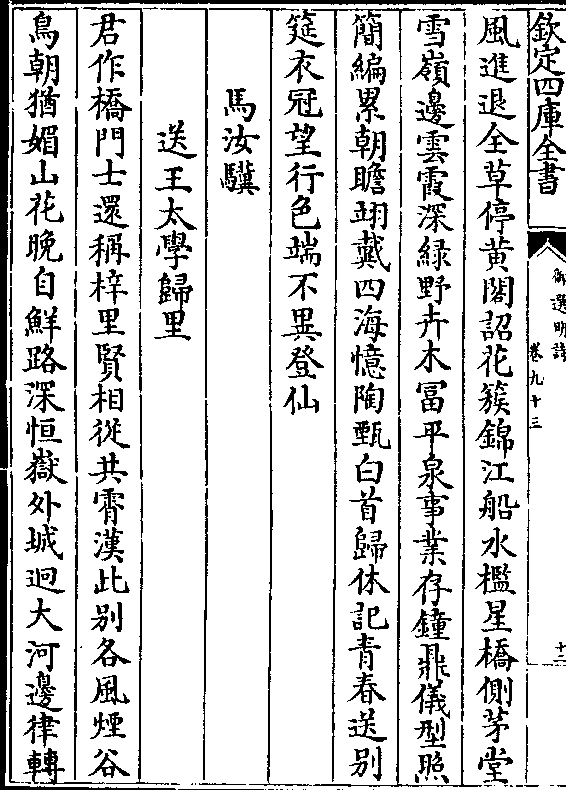 欽定四庫全書
御選明詩
卷九十三
十二
風進退全草停黃閣詔花簇錦江船水檻星橋側茅堂
雪嶺邊雲霞深綠野卉木冨平泉事業存鐘鼎儀型照
簡編累朝瞻翊戴四海憶陶甄白首歸休記青春送別
筵衣冠望行色端不異登仙
馬汝驥
送王太學歸里
君作橋門士還稱梓里賢相從共霄漢此別各風煙谷
鳥朝猶媚山花晚自鮮路深恒嶽外城迥大河邊律轉